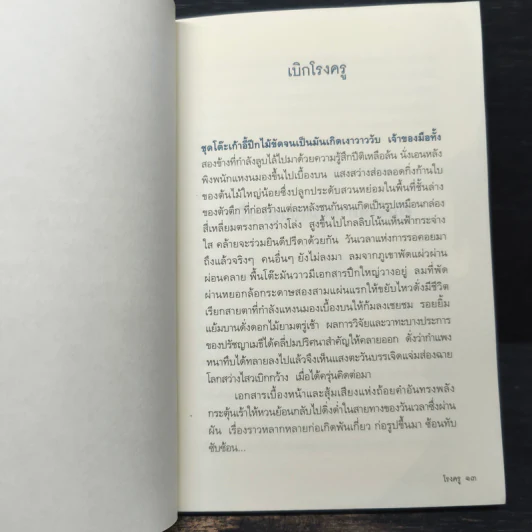 เบิกโรงครู
ชุดโต๊ะเก้าอี้ปีกไม้ขัดจนเป็นมันเกิดเงาวาววับ เจ้าของมือทั้ง
สองข้างที่กำลังลูบไล้ไปมาด้วยความรู้สึกปีติเหลือล้น นั่งเอนหลัง
พิงพนักแหงนมองขึ้นไปเบื้องบน แสงสว่างส่องลอดกิ่งก้านใบ
ของต้นไม้ใหญ่น้อยซึ่งปลูกประดับสวนหย่อมในพื้นที่ชั้นล่าง
ของตัวตึก ที่ก่อสร้างแต่ละหลังชนกันจนเกิดเป็นรูปเหมือนกล่อง
สี่เหลี่ยมตรงกลางว่างโล่ง สูงขึ้นไปไกลลิบโน้นเห็นฟ้ากระจ่าง
ใส คล้ายจะร่วมยินดีปรีดาด้วยกัน วันเวลาแห่งการรอคอยมา
ถึงแล้วจริงๆ คนอื่นๆ ยังไม่ลงมา ลมจากภูเขาพัดแผ่วผ่าน
ผ่อนคลาย พื้นโต๊ะมันวาวมีเอกสารปึกใหญ่วางอยู่ ลมที่พัด
ผ่านหยอกล้อกระดาษสองสามแผ่นแรกให้ขยับไหวดั่งมีชีวิต
เรียกสายตาที่กำลังแหงนมองเบื้องบนให้ก้มลงเชยชม รอยยิ้ม
แย้มบานดั่งดอกไม้ยามตรู่เช้า ผลการวิจัยและวาทะบางประการ
ของปรัชญาเมธีได้คลี่ปมปริศนาสำคัญให้คลายออก ดั่งว่ากำแพง
หนาทึบได้ทลายลงไปแล้วจึงเห็นแสงตะวันบรรเจิดแจ่มส่องฉาย
โลกสว่างไสวเบิกกว้าง เมื่อได้ครุ่นคิดต่อมา
เอกสารเบื้องหน้าและสุ้มเสียงแห่งถ้อยคำอันทรงพลัง
กระตุ้นเร้าให้หวนย้อนกลับไปดิ่งด่ำในสายทางของวันเวลาซึ่งผ่าน
ผัน เรื่องราวหลากหลายก่อเกิดพันเกี่ยว ก่อรูปขึ้นมา ซ้อนทับ
ซับซ้อน...
โรงครู ๑๓